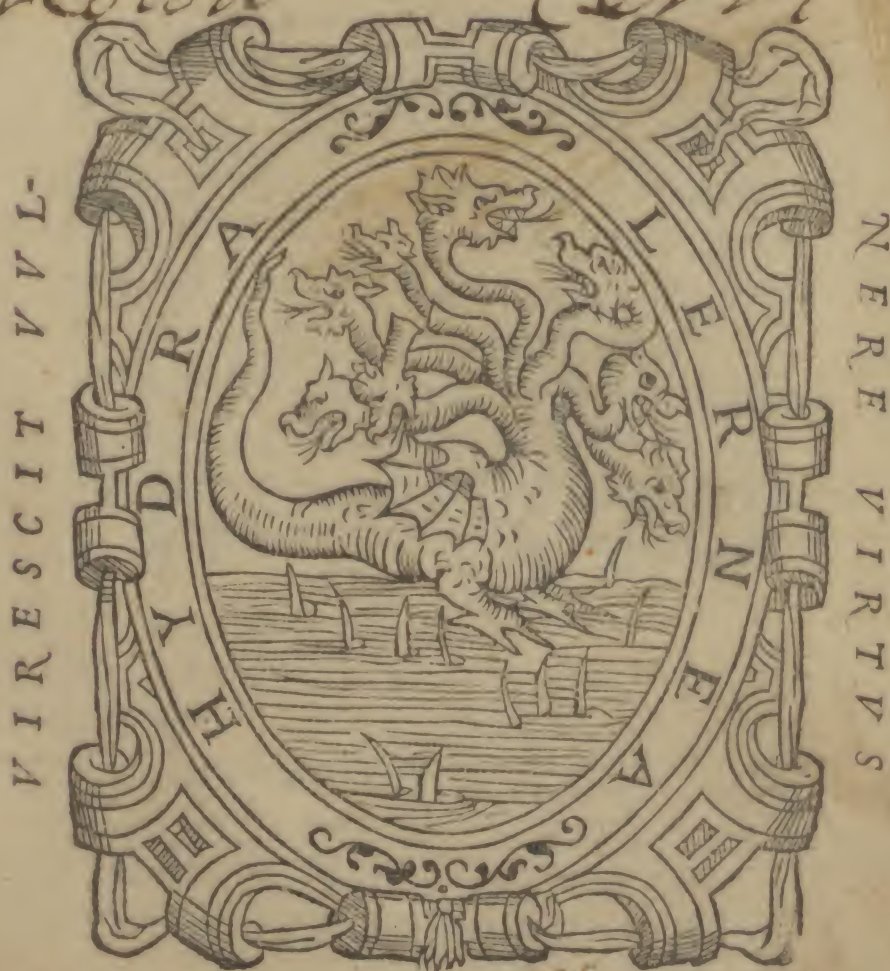 VIRESCIT VVL-
NERE VIRTVS
HYDRA LERNEA